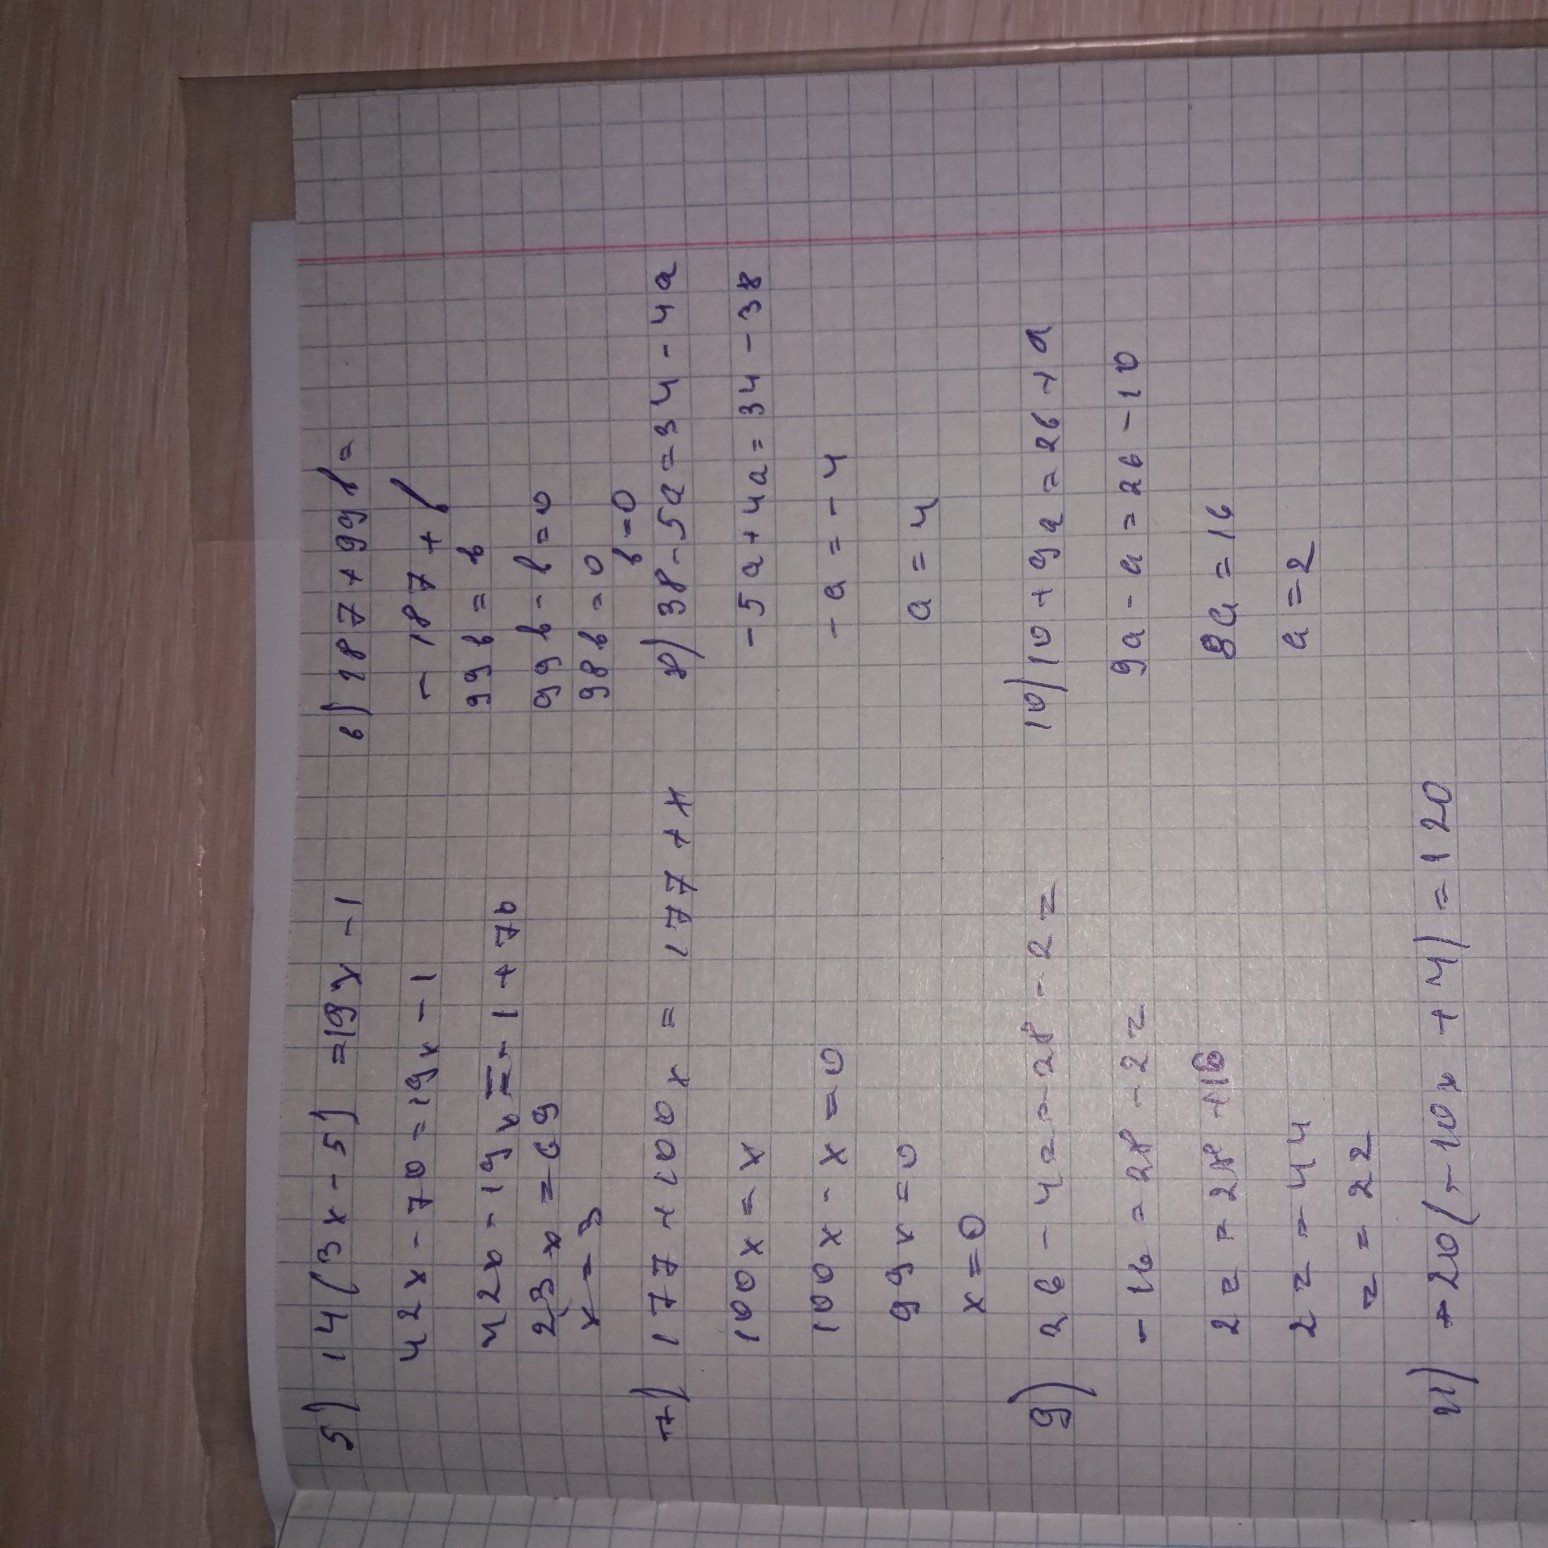 5) 14(3x-5)=19x-1
42x-70=19x-1
42x-19x=-1+70
23x=69
x=3
6) 187+99b=
-187+b
99b=b
99b-b=0
98b=0
b=0
7) 177+100x=177+x
100x=x
100x-x=0
99x=0
x=0
8) 38-5a=34-4a
-5a+4a=34-38
-a=-4
a=4
9) 26-4z=28-2z
-16=28-2z
2z=28+16
2z=44
z=22
10) 10+9a=26+a
9a-a=26-10
8a=16
a=2
11) +20(-10x+4)=120